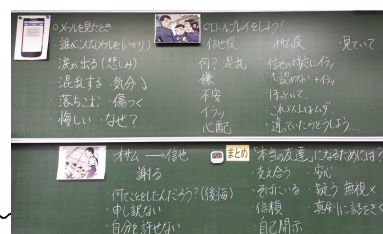 ○メールを見たとき
誰がこんなメールを(いかり)
涙が出る(悲しみ)
混乱する 気分↓
落ちこむ 傷つく
悔しい なぜ?
○ロールプレイをしよう!
信也役
何? 混乱
嫌
不安
イラッ
心配
オサム役
信也の対応にイラッ
を認めない イラッ
ほっといて
違っていたらどうしよう…
見ていて
オサム → 信也
謝る
・何てことをしたんだろう?(後悔)
・申し訳ない
・自分を許せない
まとめ 「本当の友達」になるためには?
・支え合う ・安心
・そばにいる ・疑う 無視×
・信頼 ・真剣に話をきく
・自己開示